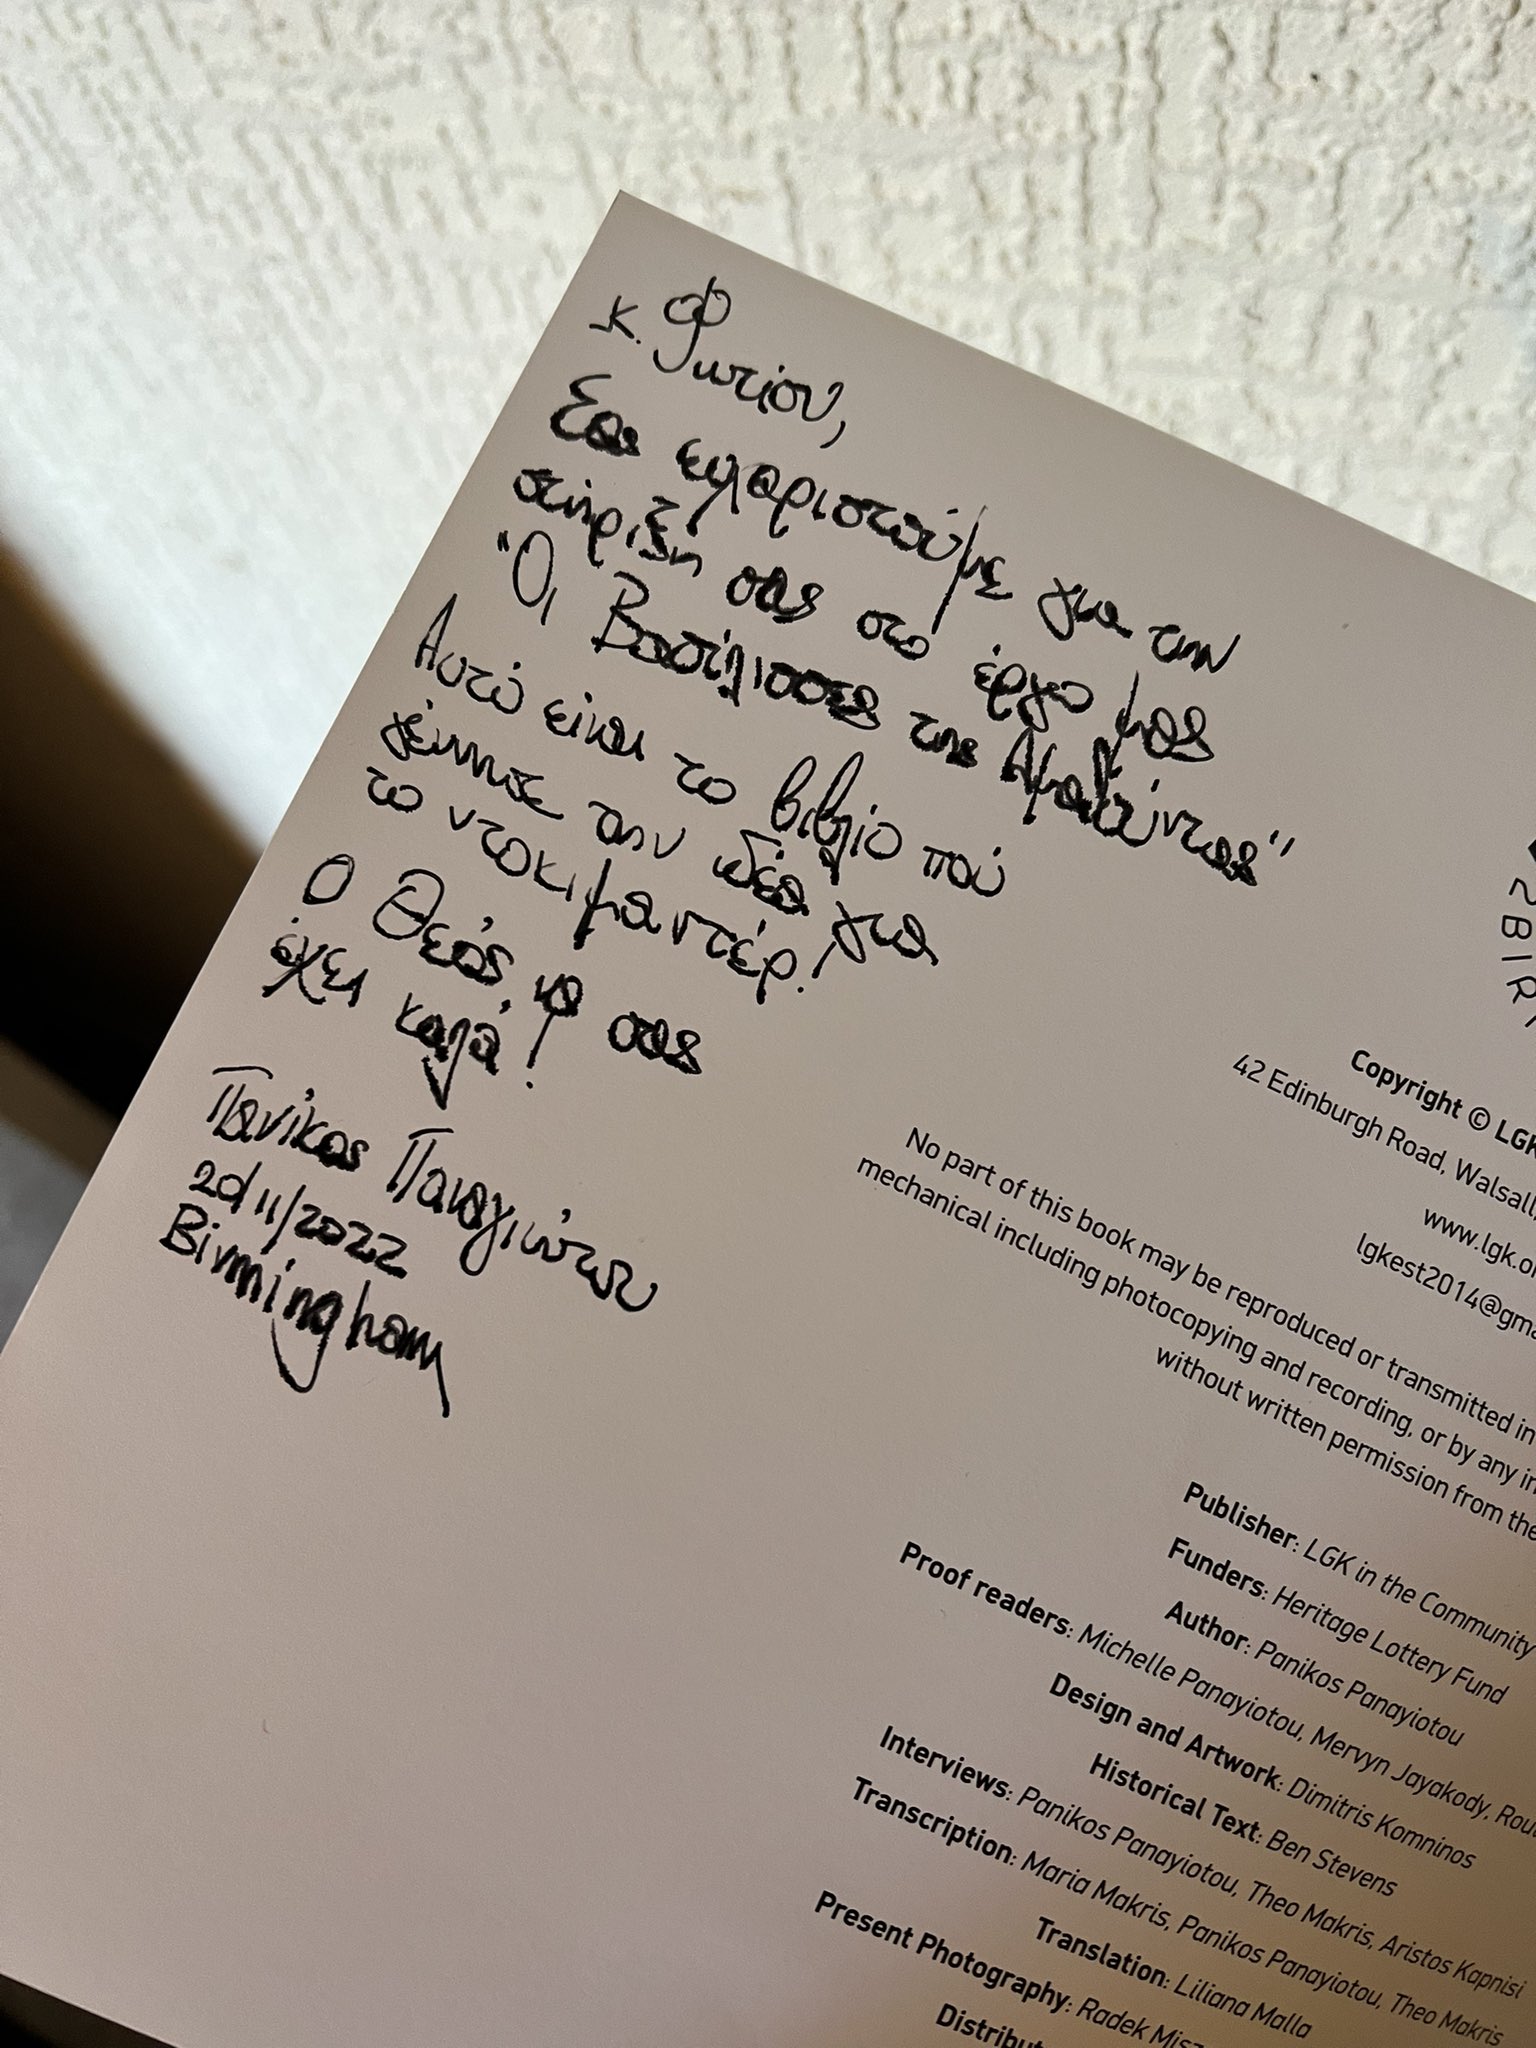 κ. Φωτίου,
Σας ευχαριστούμε για την
στήριξη σας στο έργο μας
"Οι Βασίλισσες της Αμαθούντας"
Αυτό είναι το βιβλίο πού
γέννησε την ιδέα για
το ντοκιμαντέρ!
Ο Θεός να σας
έχει καλά!
Πανίκος Παναγιώτου
20/11/2022
Birmingham
2BIR
Copyright © LGK
42 Edinburgh Road, Walsall,
www.lgk.or
lgkest2014@gma
No part of this book may be reproduced or transmitted in
mechanical including photocopying and recording, or by any in
without written permission from the
Publisher: LGK in the Community
Funders: Heritage Lottery Fund
Author: Panikos Panayiotou
Proof readers: Michelle Panayiotou, Mervyn Jayakody, Rou
Design and Artwork: Dimitris Komninos
Historical Text: Ben Stevens
Interviews: Panikos Panayiotou, Theo Makris, Aristos Kapnisi
Transcription: Maria Makris, Panikos Panayiotou, Theo Makris
Translation: Liliana Malla
Present Photography: Radek Misz
Distribut